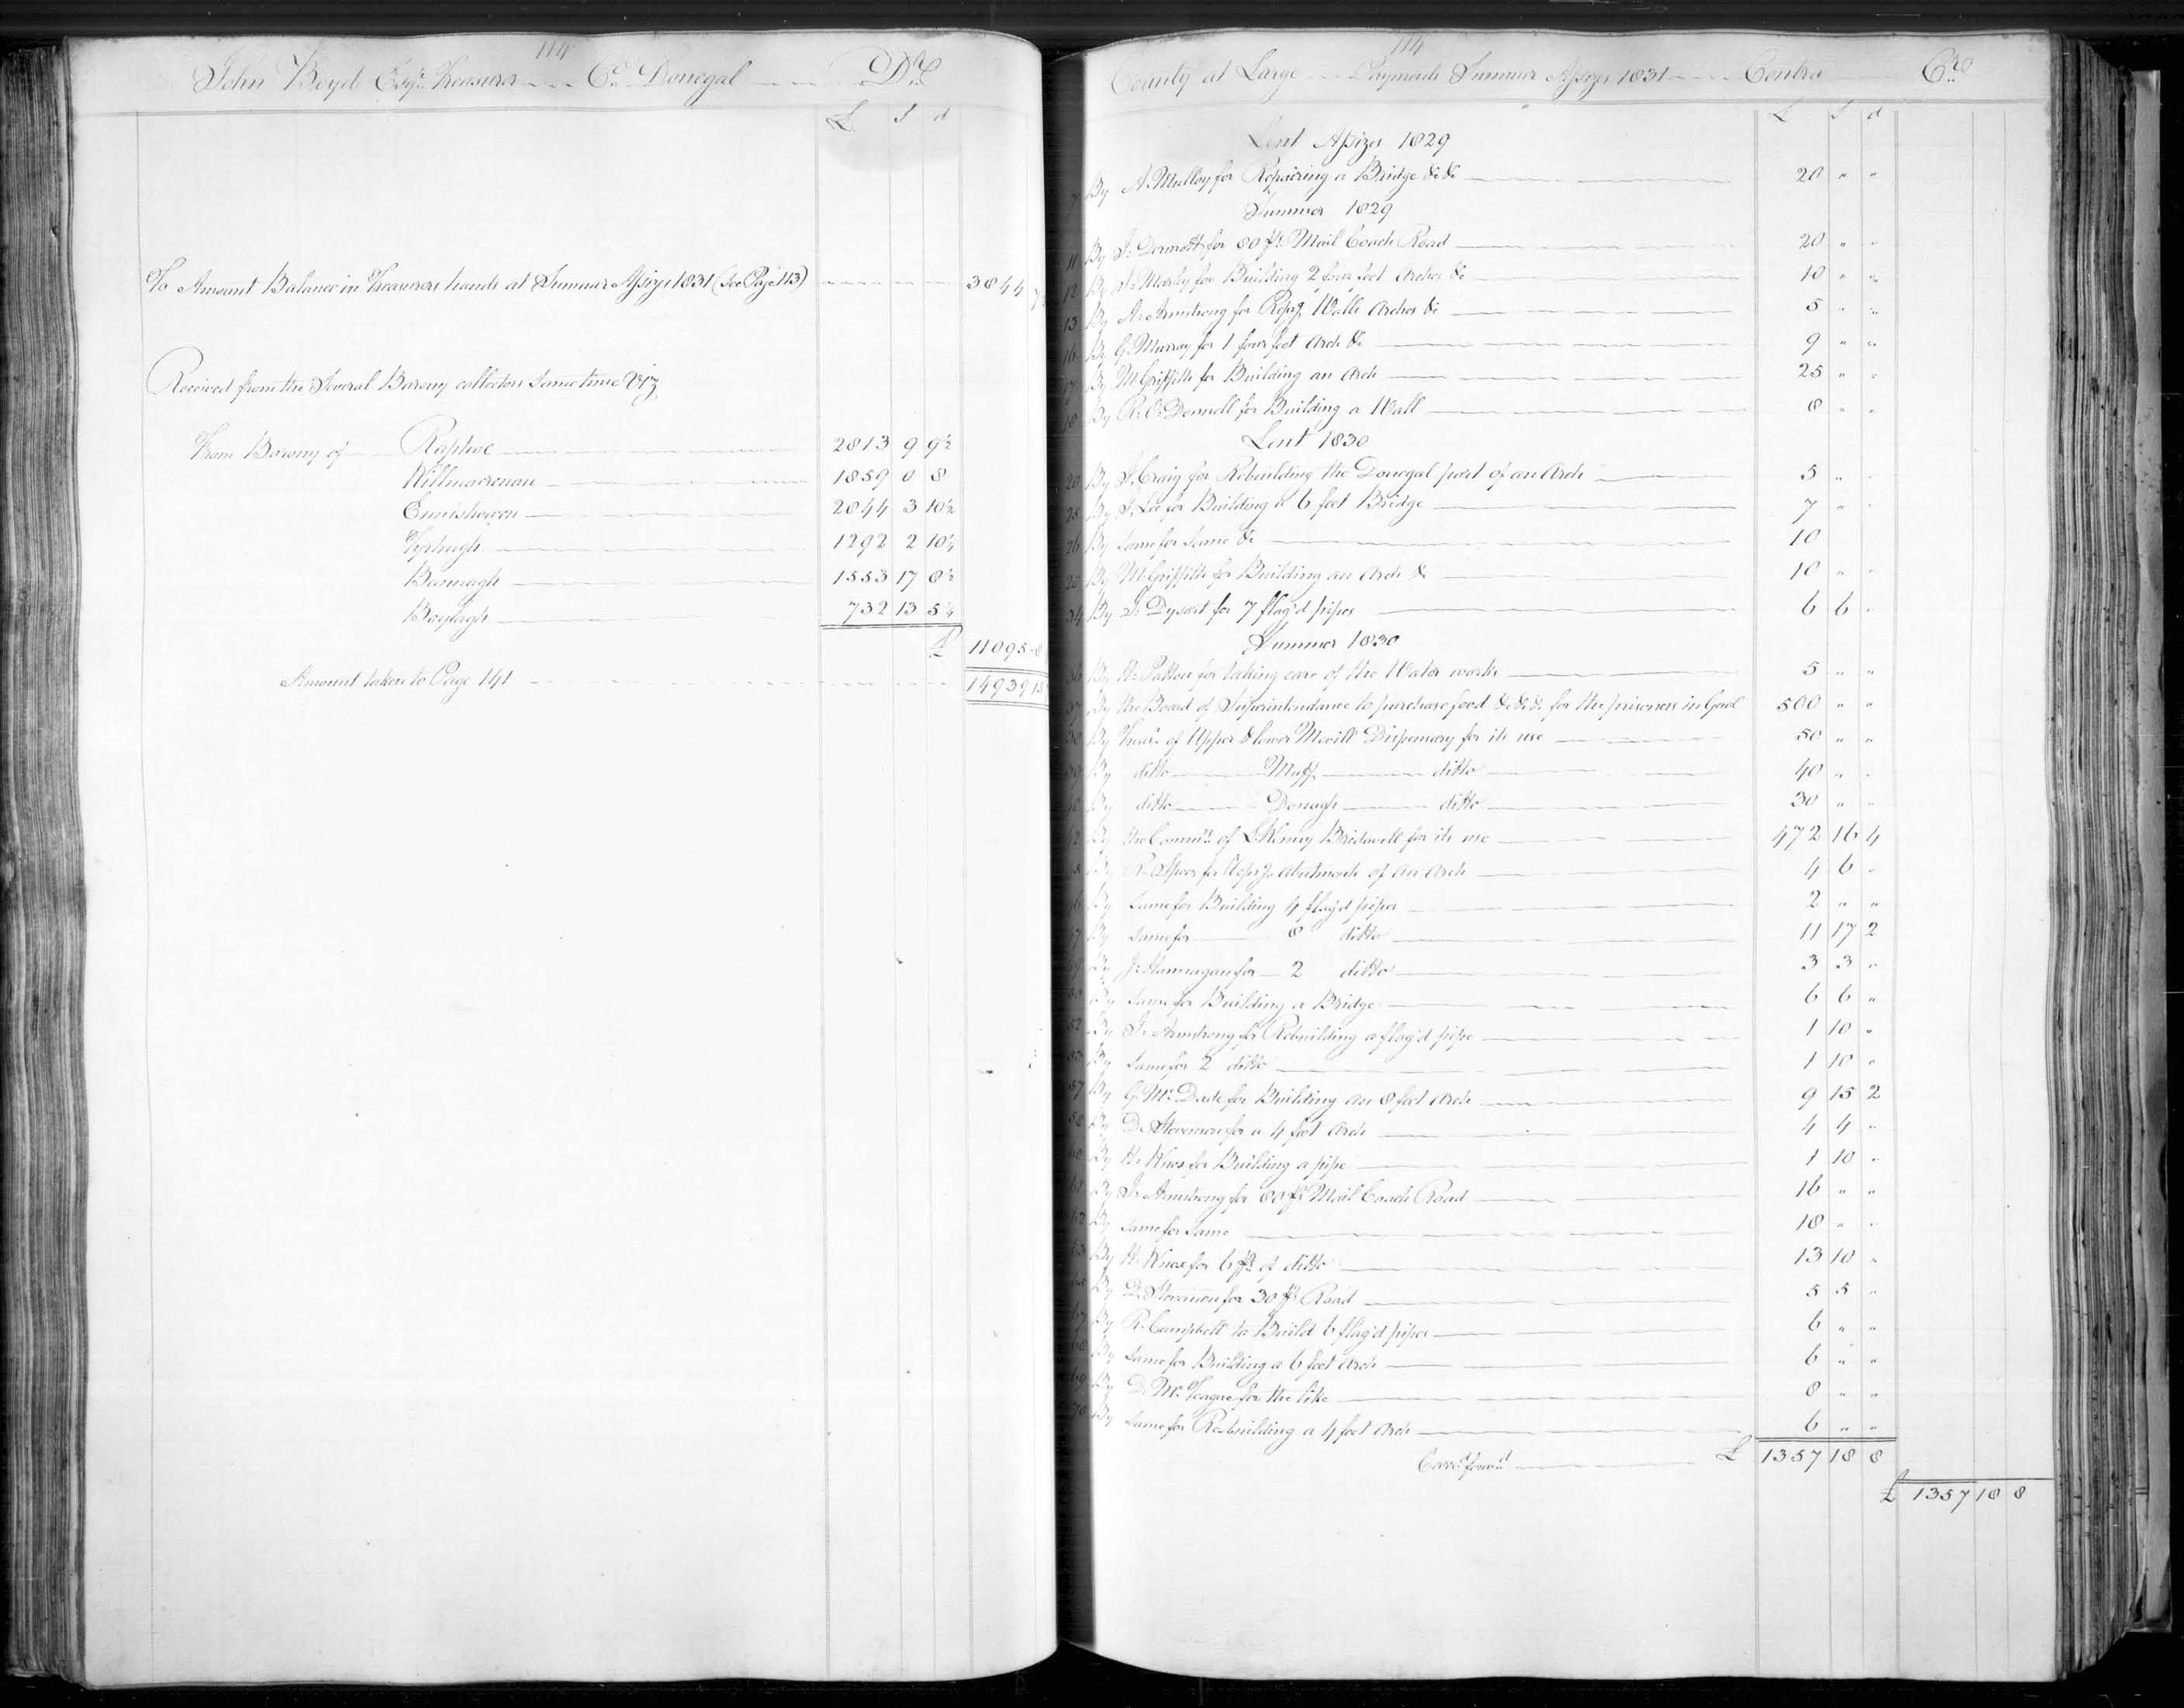 114
John Boyd Esqr. Treasurer Co. Donegal Dr.
£ s d
To Amount Balance in Treasurers hands at Summer Assizes 1831 (See Page 113) 3844
Received from the Several Barony collectors Same time Viz
From Barony of Raphoe 2813 9 9½
Killmacrenan 1859 0 8
Ennishowen 2844 3 10½
Tyrhugh 1292 2 10¼
Bannagh 1553 17 8½
Boylagh 732 13 5¼
£ 11095
Amount taken to Page 141 14939
114
County at Large Payments Summer Assizes 1831 Contra Cr.
£ s d
Lent Assizes 1829
7 By A. Mulloy for Repairing a Bridge &c &c 20 " "
Summer 1829
11 By Dermott for 80 ps. Mail Coach Road 20 " "
12 By Marley for Building 2 four feet Arches &c 10 " "
13 By A. Armstrong for Repg. Walls Arches &c 5 " "
16 By G. Murray for 1 four feet Arch &c 9 " "
17 By M. Griffith for Building an Arch 25 " "
18 By R. O'Donnell for Building a Wall 8 " "
Lent 1830
20 By J. Craig for Rebuilding the Donegal part of an Arch 5 " "
25 By J. Lee for Building a 6 feet Bridge 7 " "
26 By Same for Same &c 10
28 By M. Griffith for Building an Arch & 10 " "
34 By J. Dysart for 7 flag'd pipes 6 6 "
Summer 1830
36 By H. Patton for taking care of the Water works 5 " "
37 By the Board of Superintendance to purchase food &c &c &c for the prisoners in Gaol 500 " "
38 By Treasr. of Upper & lower Movill Dispensary for its use 50 " "
39 By ditto Muff ditto 40 " "
40 By ditto Donagh ditto 30 " "
42 By the Commrs. of L:Kenny Bridewell for its use 472 16 4
45 By R. Speer for Repg. abutments of an Arch 4 6 "
46 By Same for Building 4 flag'd pipes 2 " "
47 By Same for 8 ditto 11 17 2
By J. Hannagan for 2 ditto 3 3 "
By Same for Building a Bridge 6 6 "
52 By Armstrong for Rebuilding a flag'd pipe 1 10 "
53 By Same for 2 ditto 1 10 "
57 By G. Mc. Dade for Building an 8 feet Arch 9 15 2
58 By D. Stevenson for a 4 feet Arch 4 4 "
60 By H. Knox for Building a pipe 1 10 "
61 By Armstrong for 80 ps. Mail Coach Road 16 " "
62 By Same for Same 18 " "
63 By H. Knox for 6 ps. of ditto 13 10 "
65 By D. Stevenson for 30 ps. Road 5 5 "
67 By R. Campbell to Build 6 flag'd pipes 6 " "
68 By Same for Building a 6 feet Arch 6 " "
69 By D. Mc. Teague for the like 8 " "
70 By Same for Rebuilding a 4 feet Arch 6 " "
Carrd. forwd. £ 1357 18 8
£ 1357 18 8